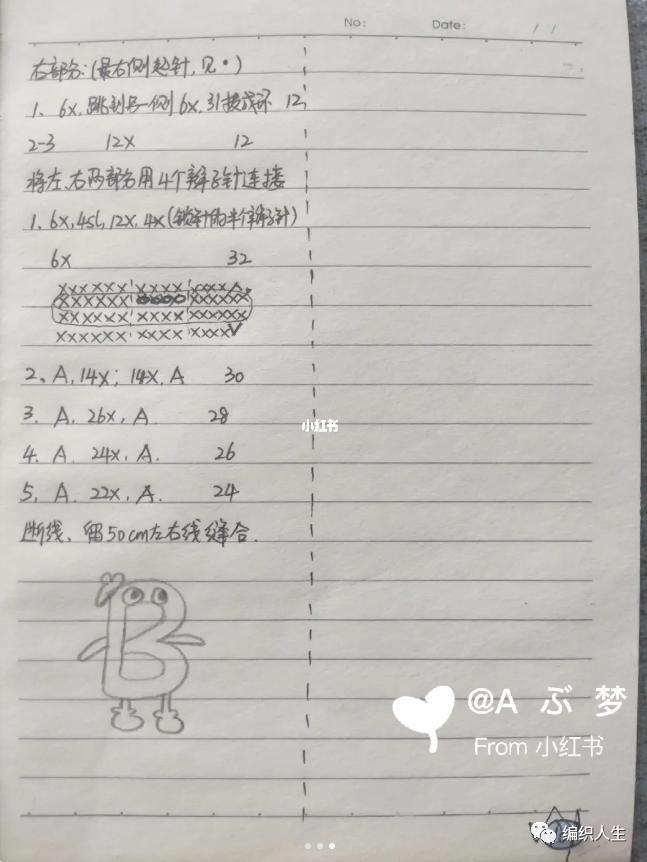 No:
Date: / /
右部分:(最右侧起针,见•)
1、6x,跳到另一侧6x,引拔成环 12
2-3 12x 12
将左、右两部分用4个辫子针连接
1、6x,4sl,12x,4x(锁针的半个辫子针)
6x 32
xxxxxx xxxx xxxxA
xxxxxx xxxxxx
xxxxxx xxxx xxxxxx
xxxxxx xxxx xxxxV
2、A,14x;14x,A 30
3. A. 26x, A 28
4. A. 24x, A. 26
5, A. 22x, A. 24
断线、留50cm左右线缝合.
B
小红书
@A ぶ 梦
From 小红书
编织人生